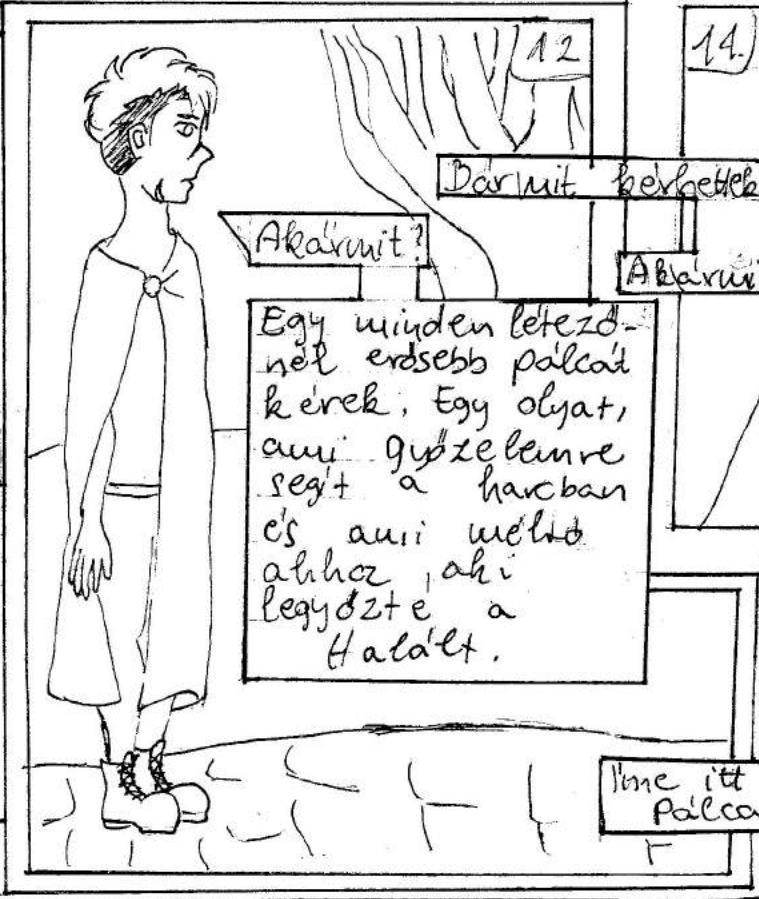 12
14.
Bármit kérhettek
Akármit?
Akármi
Egy minden létező-
nél erősebb pálcát
kérek. Egy olyat,
ami győzelemre
segít a harcban
és ami méltó
ahhoz, aki
legyőzte a
Halált.
Íme itt
Pálca